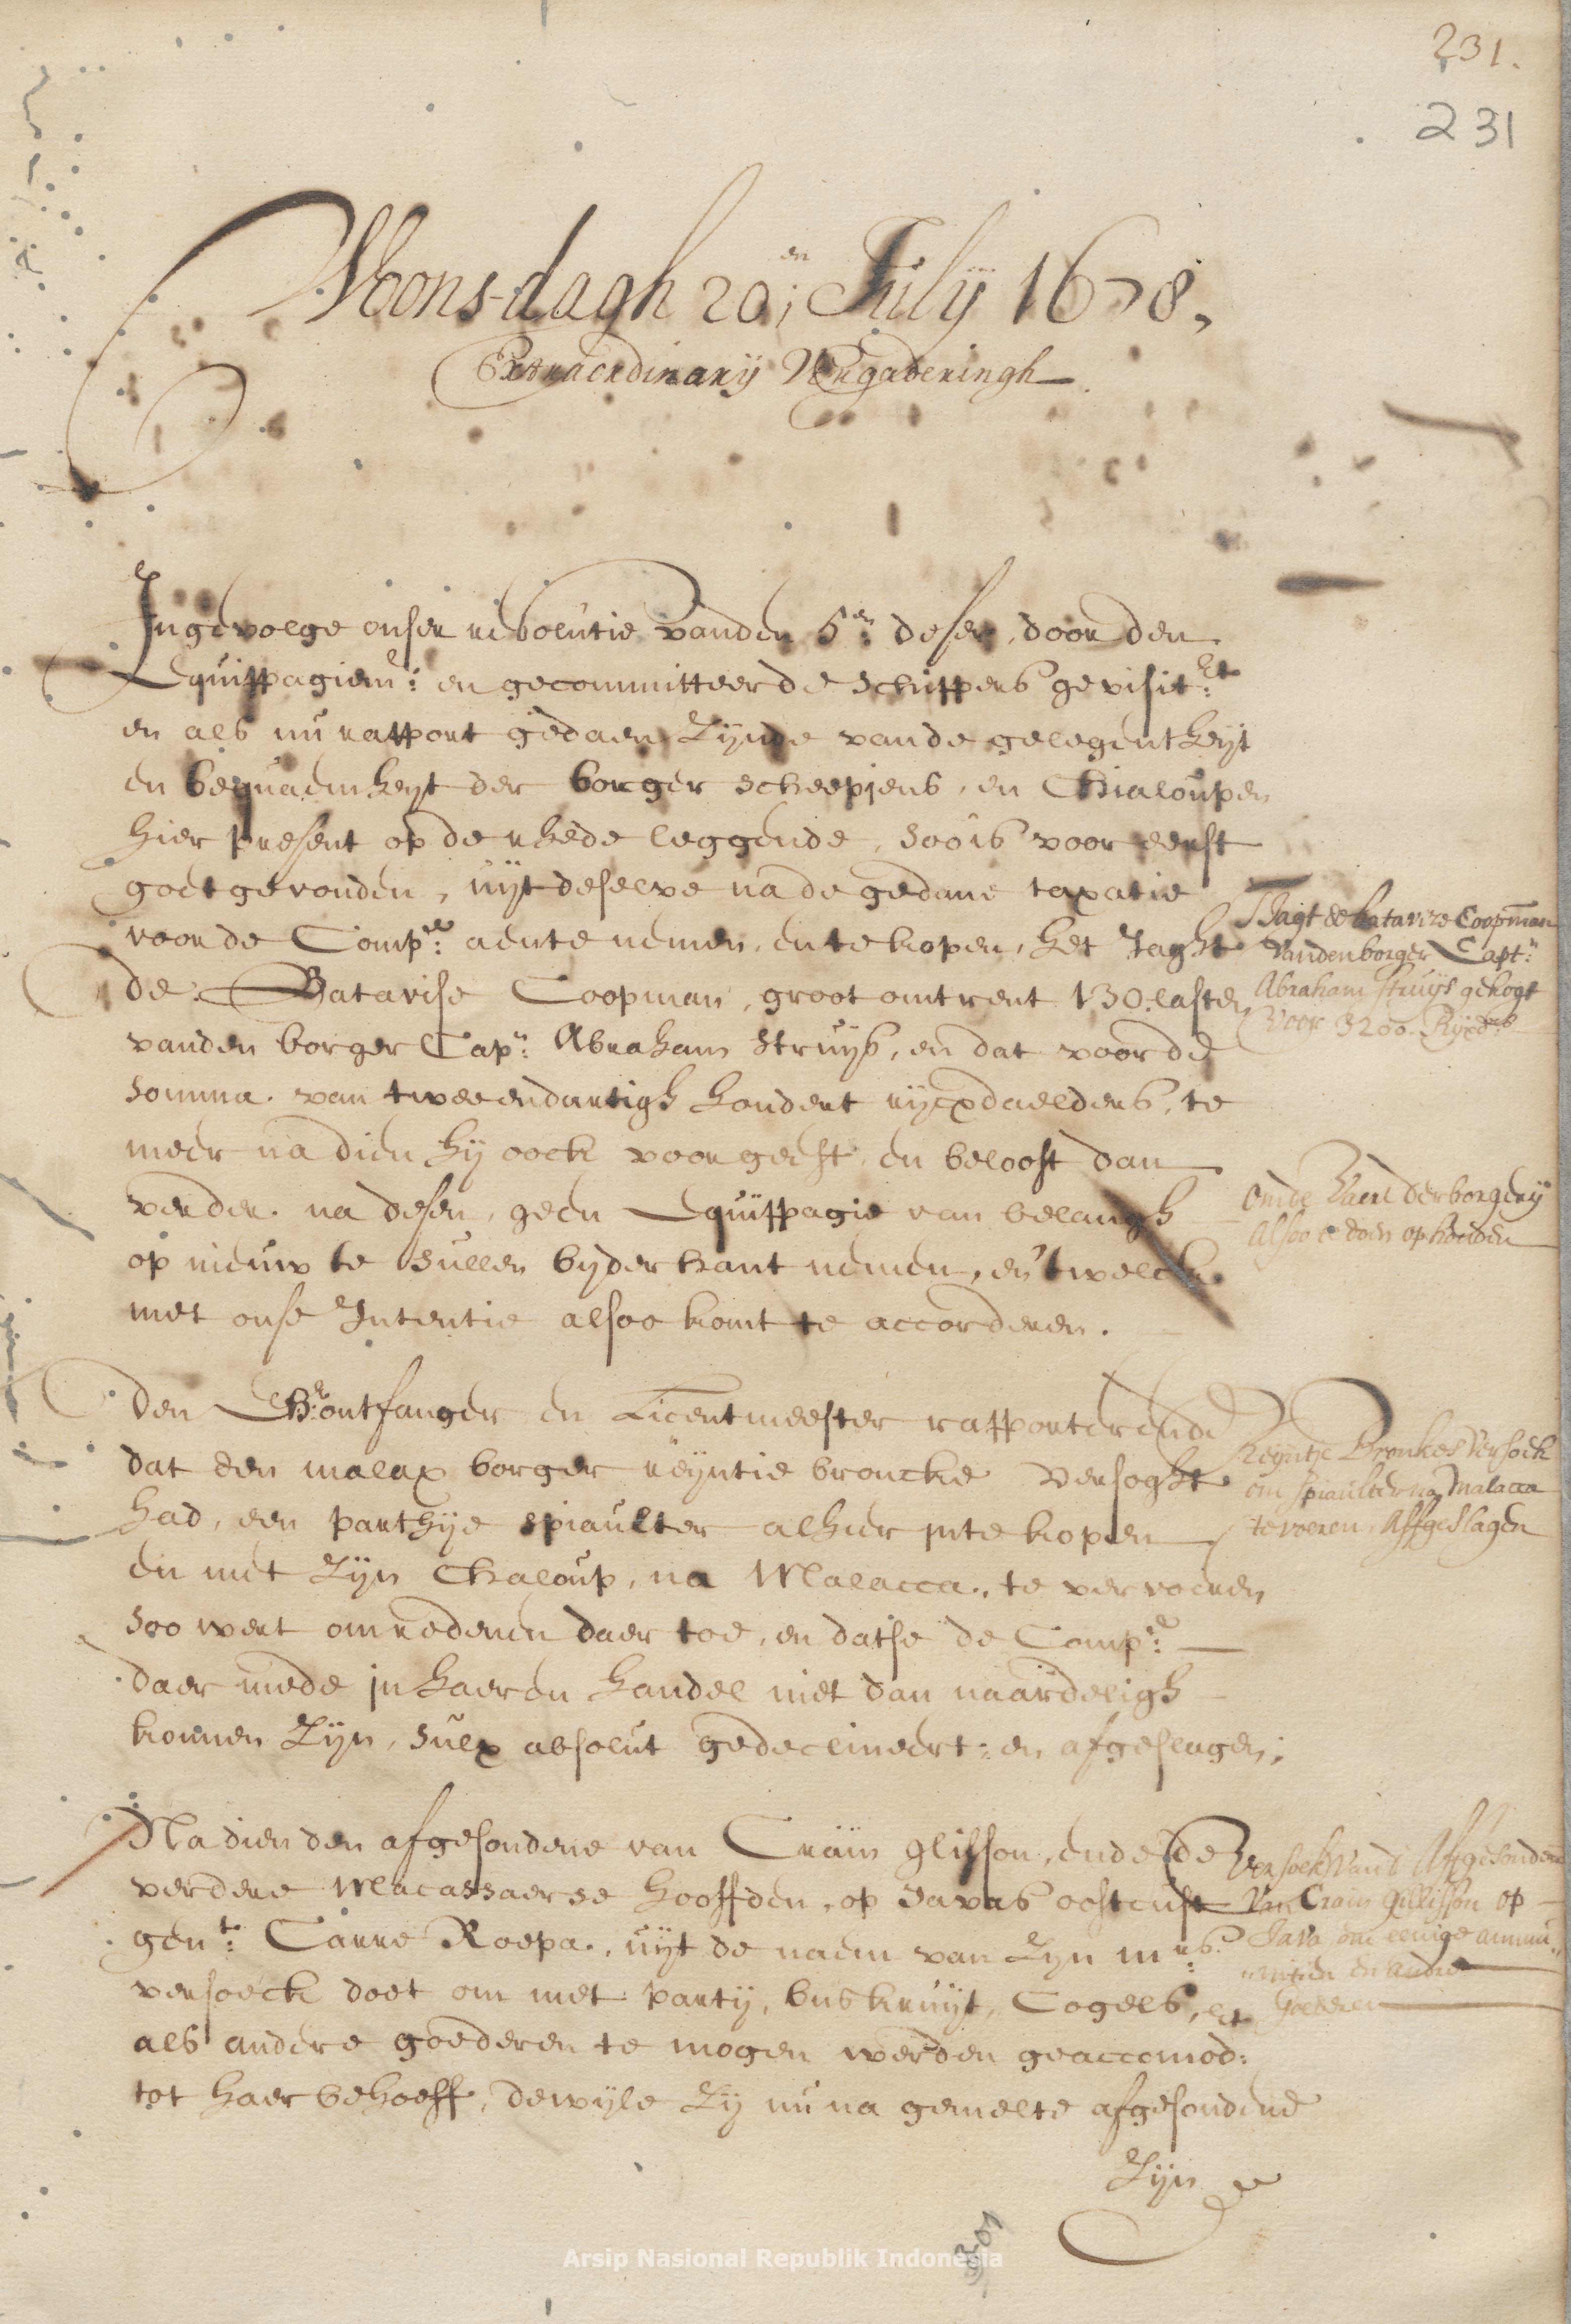 231.
231
Woonsdagh 20:en Julij 1678,
Extraordinarij Vergaderingh
Ingevolge onser resolutie vanden 5:en deser, door den
Equippagiemr: en gecommitteerde schippers gevisit:rt
en als nu rapport gedaen zijnde vande gelegentheijt
en bequaemheijt der borger scheepjens, en Chialoupen
hier present op de rhede leggende, soo is voor eerst
goet gevonden, uijt deselve na de gedane taxatie
voor de Comp:e aente nemen, en te kopen, het Jaght
de Batavise Coopman, groot omtrent 130 lasten
vanden borger Capn: Abraham Struijs, en dat voor de
somma van tweeendartigh hondert rijcxdaelders, te
meer na dien hij oock voorgeeft, en belooft dan
verder na desen, geen Equippagie van belangh
op nieuw te sullen bijder hant nemen, en 't welck
met onse Intentie alsoo komt te accorderen.
T Jagt de batavize Coopman
vanden borger Captn:
Abraham Struijs gekogt
voor 3200. Rijxd:s
Om de Vaert der borgerij
alsoo te doen ophouden
Den Ontfanger en Licentmeester rapporterende
dat den malax borger reijntie broncke versoght
had, een parthije spiaulter alhier inte kopen
en met zijn Chaloup, na Malacca, te vervoeren
soo wert om redenen daer toe, en datse de Comp:e
daer mede in haeren handel niet dan naardeligh
konnen zijn, sulx absolut gedeclineert: en afgeslagen;
Reijntje Bronkes versoek
om spiaulter na Malacca
te voeren, Affgeslagen
Na dien den afgesondene van Craijn glisson, ende de
verdere Macassaerse hooffden, op Javas oostcust
gent: Carre Roepa, uijt de naem van zijn m:rs
versoeck doet om met partij, buskruijt, Cogels,
als andere goederen te mogen werden geaccomod:
tot haer behoeff, dewijle zij nu na gemelte afgesondene
Versoek vand' Affgesondene
van Crain Gillisson op
Java om eenige ammu„
„nitien en andre
Goederen
zijn